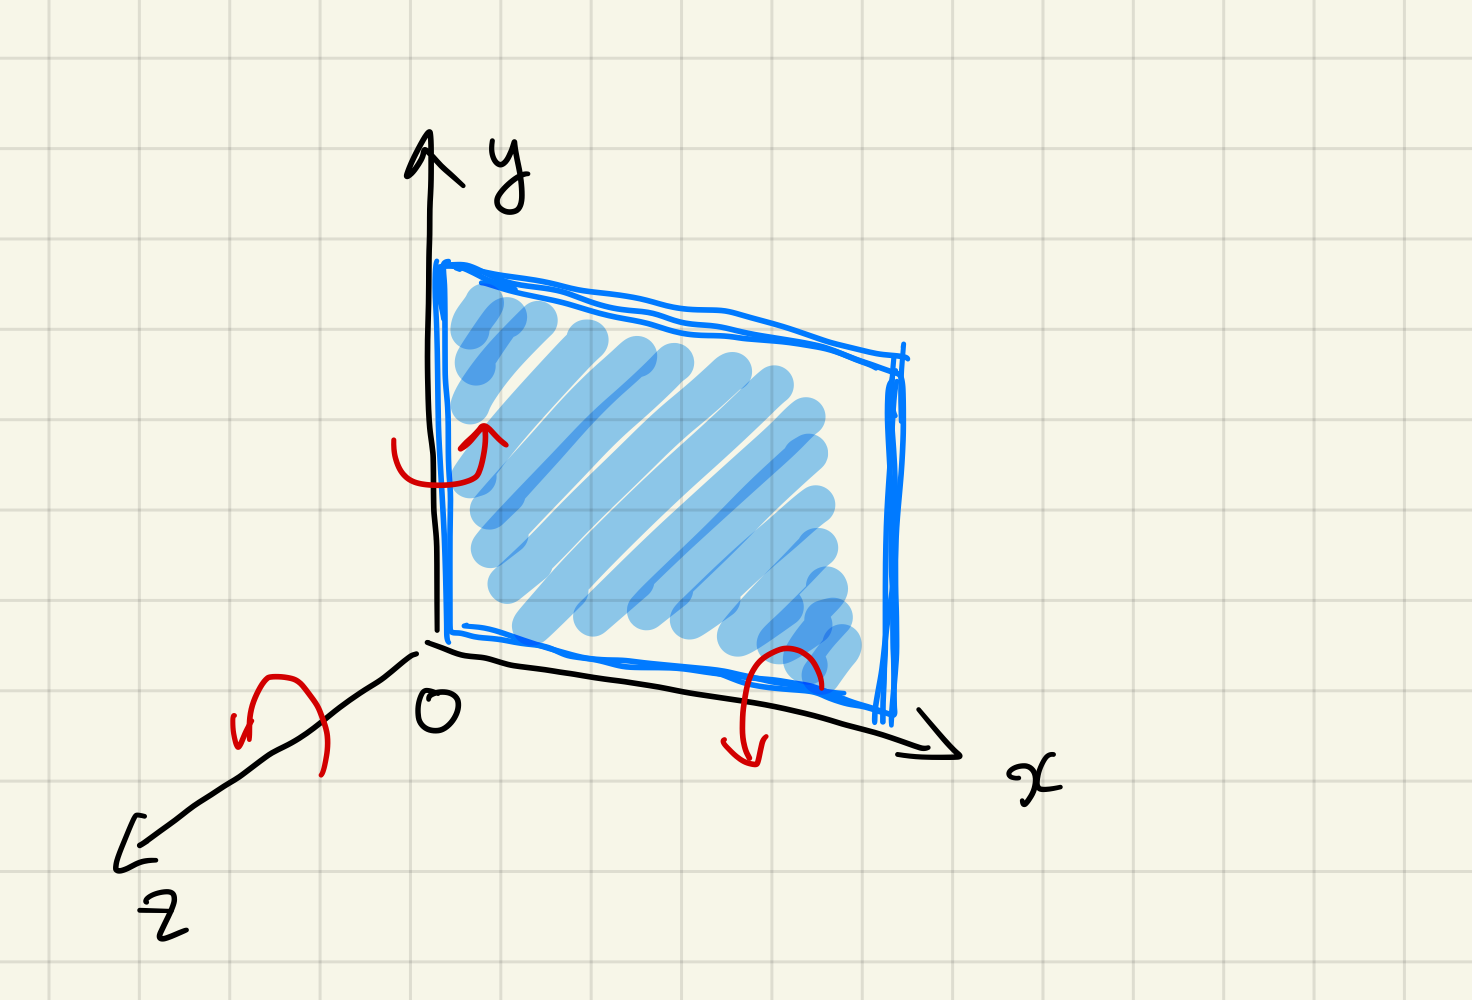 y
O
x
z